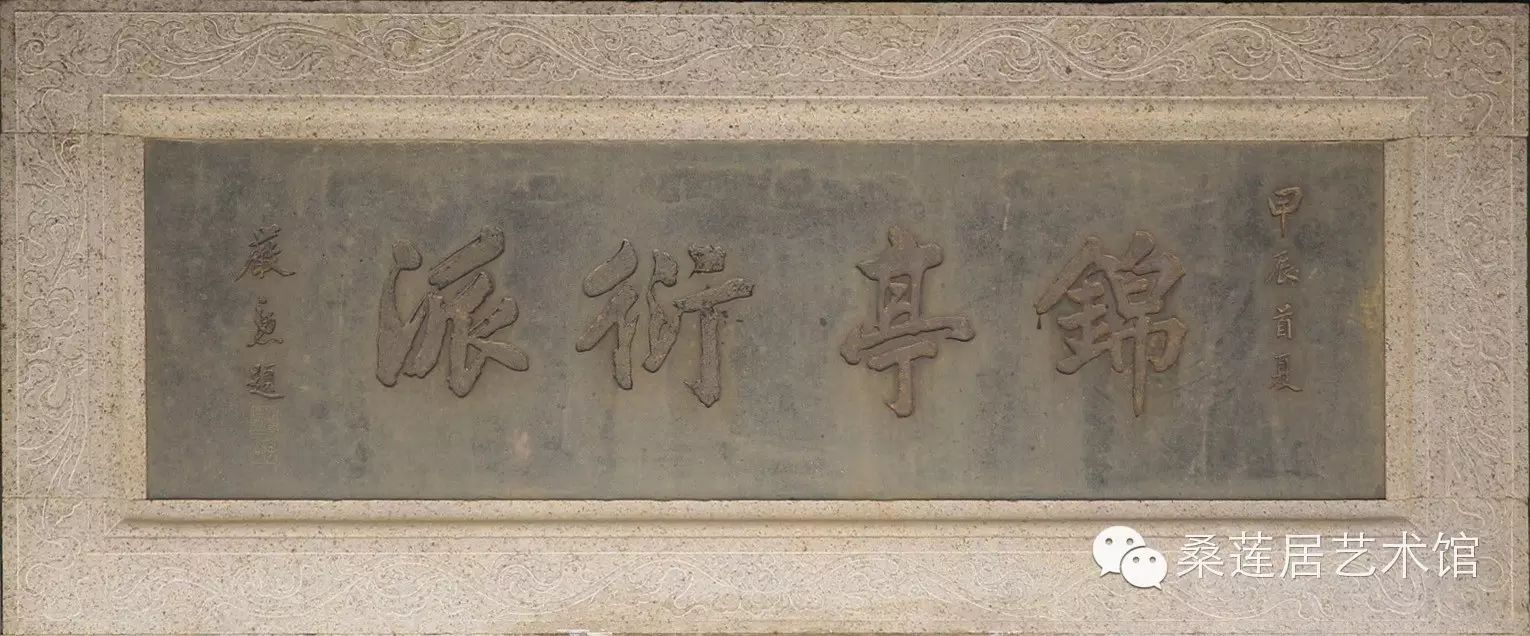 甲辰首夏
錦亭衍派
題
桑莲居艺术馆